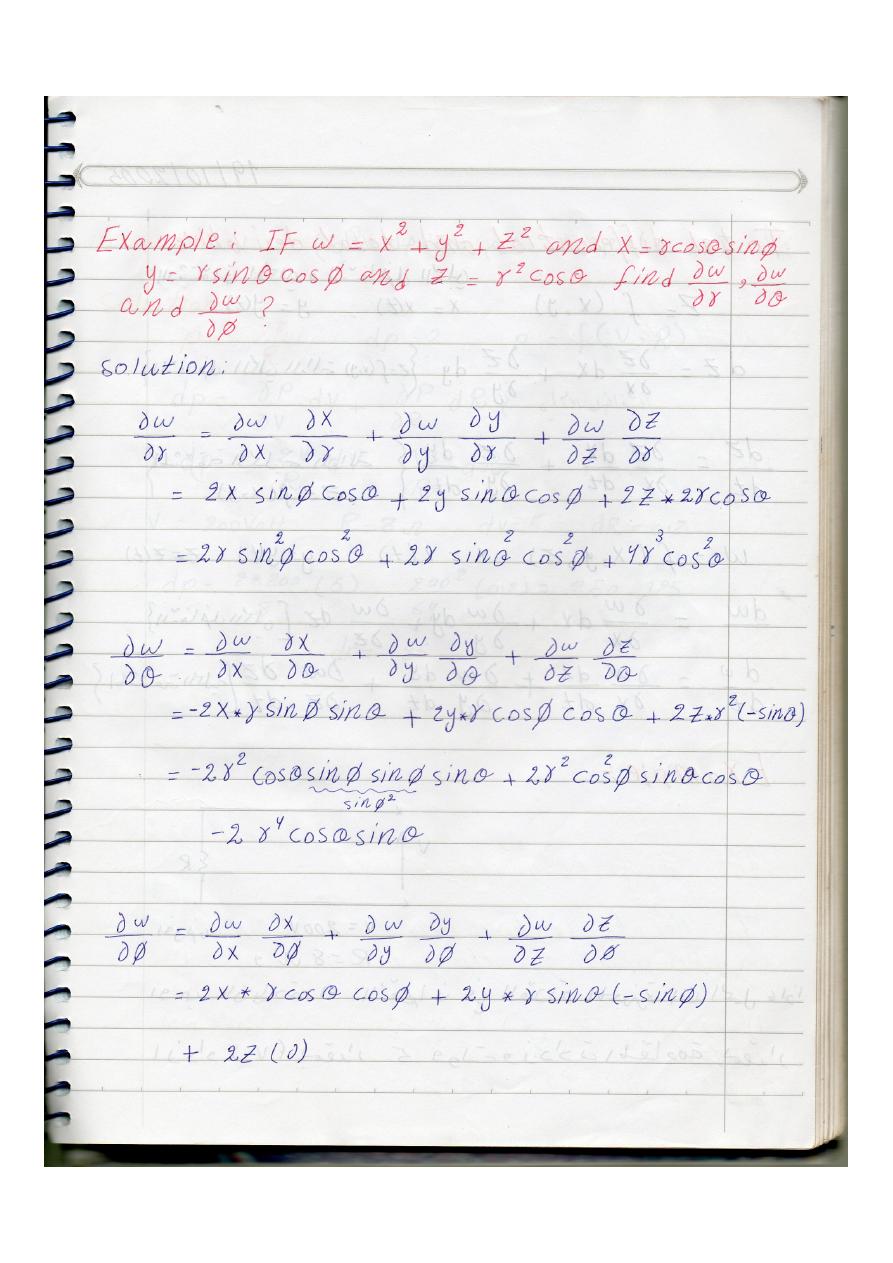 Example: IF w = x² + y² + z² and x = rcosθsinϕ
y = rsinθcosϕ and z = r²cosθ find ∂w/∂r, ∂w/∂θ
and ∂w/∂ϕ ?
solution:
∂w/∂r = ∂w/∂x ∂x/∂r + ∂w/∂y ∂y/∂r + ∂w/∂z ∂z/∂r
= 2x sinϕ cosθ + 2y sinθ cosϕ + 2z * 2rcosθ
= 2r sin²ϕ cos²θ + 2r sin²θ cos²ϕ + 4r³ cos²θ
∂w/∂θ = ∂w/∂x ∂x/∂θ + ∂w/∂y ∂y/∂θ + ∂w/∂z ∂z/∂θ
= -2x * r sinϕ sinθ + 2y * r cosϕ cosθ + 2z * r²(-sinθ)
= -2r² cosθ sinϕ sinϕ sinθ + 2r² cos²ϕ sinθ cosθ
sinϕ²
-2 r⁴ cosθ sinθ
∂w/∂ϕ = ∂w/∂x ∂x/∂ϕ + ∂w/∂y ∂y/∂ϕ + ∂w/∂z ∂z/∂ϕ
= 2x * r cosθ cosϕ + 2y * r sinθ (-sinϕ)
+ 2z (0)